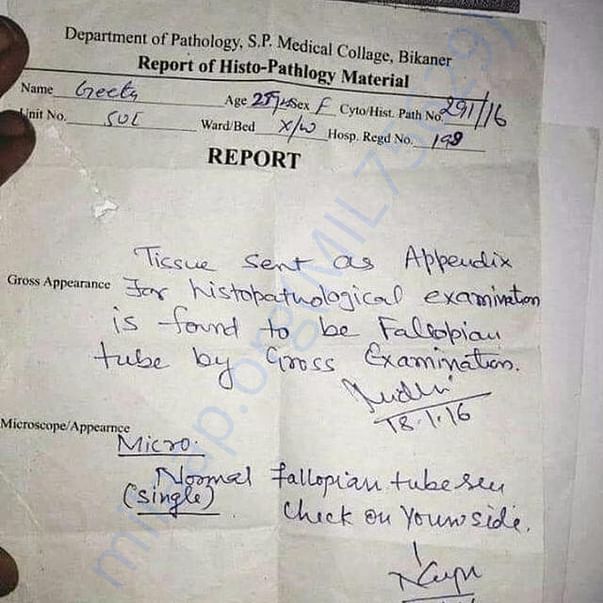 Department of Pathology, S.P. Medical Collage, Bikaner
Report of Histo-Pathlogy Material
Name Geeta Age 25yrs Sex F Cyto/Hist. Path No. 291/16
Unit No. SUL Ward/Bed X/W Hosp. Regd No. 198
REPORT
Tissue sent as Appendix
Gross Appearance For histopathological examination
is found to be Fallopian
tube by Gross Examination.
18.1.16
Microscope/Appearnce
Micro.
Normal fallopian tube seen
(single) Check on Your side.